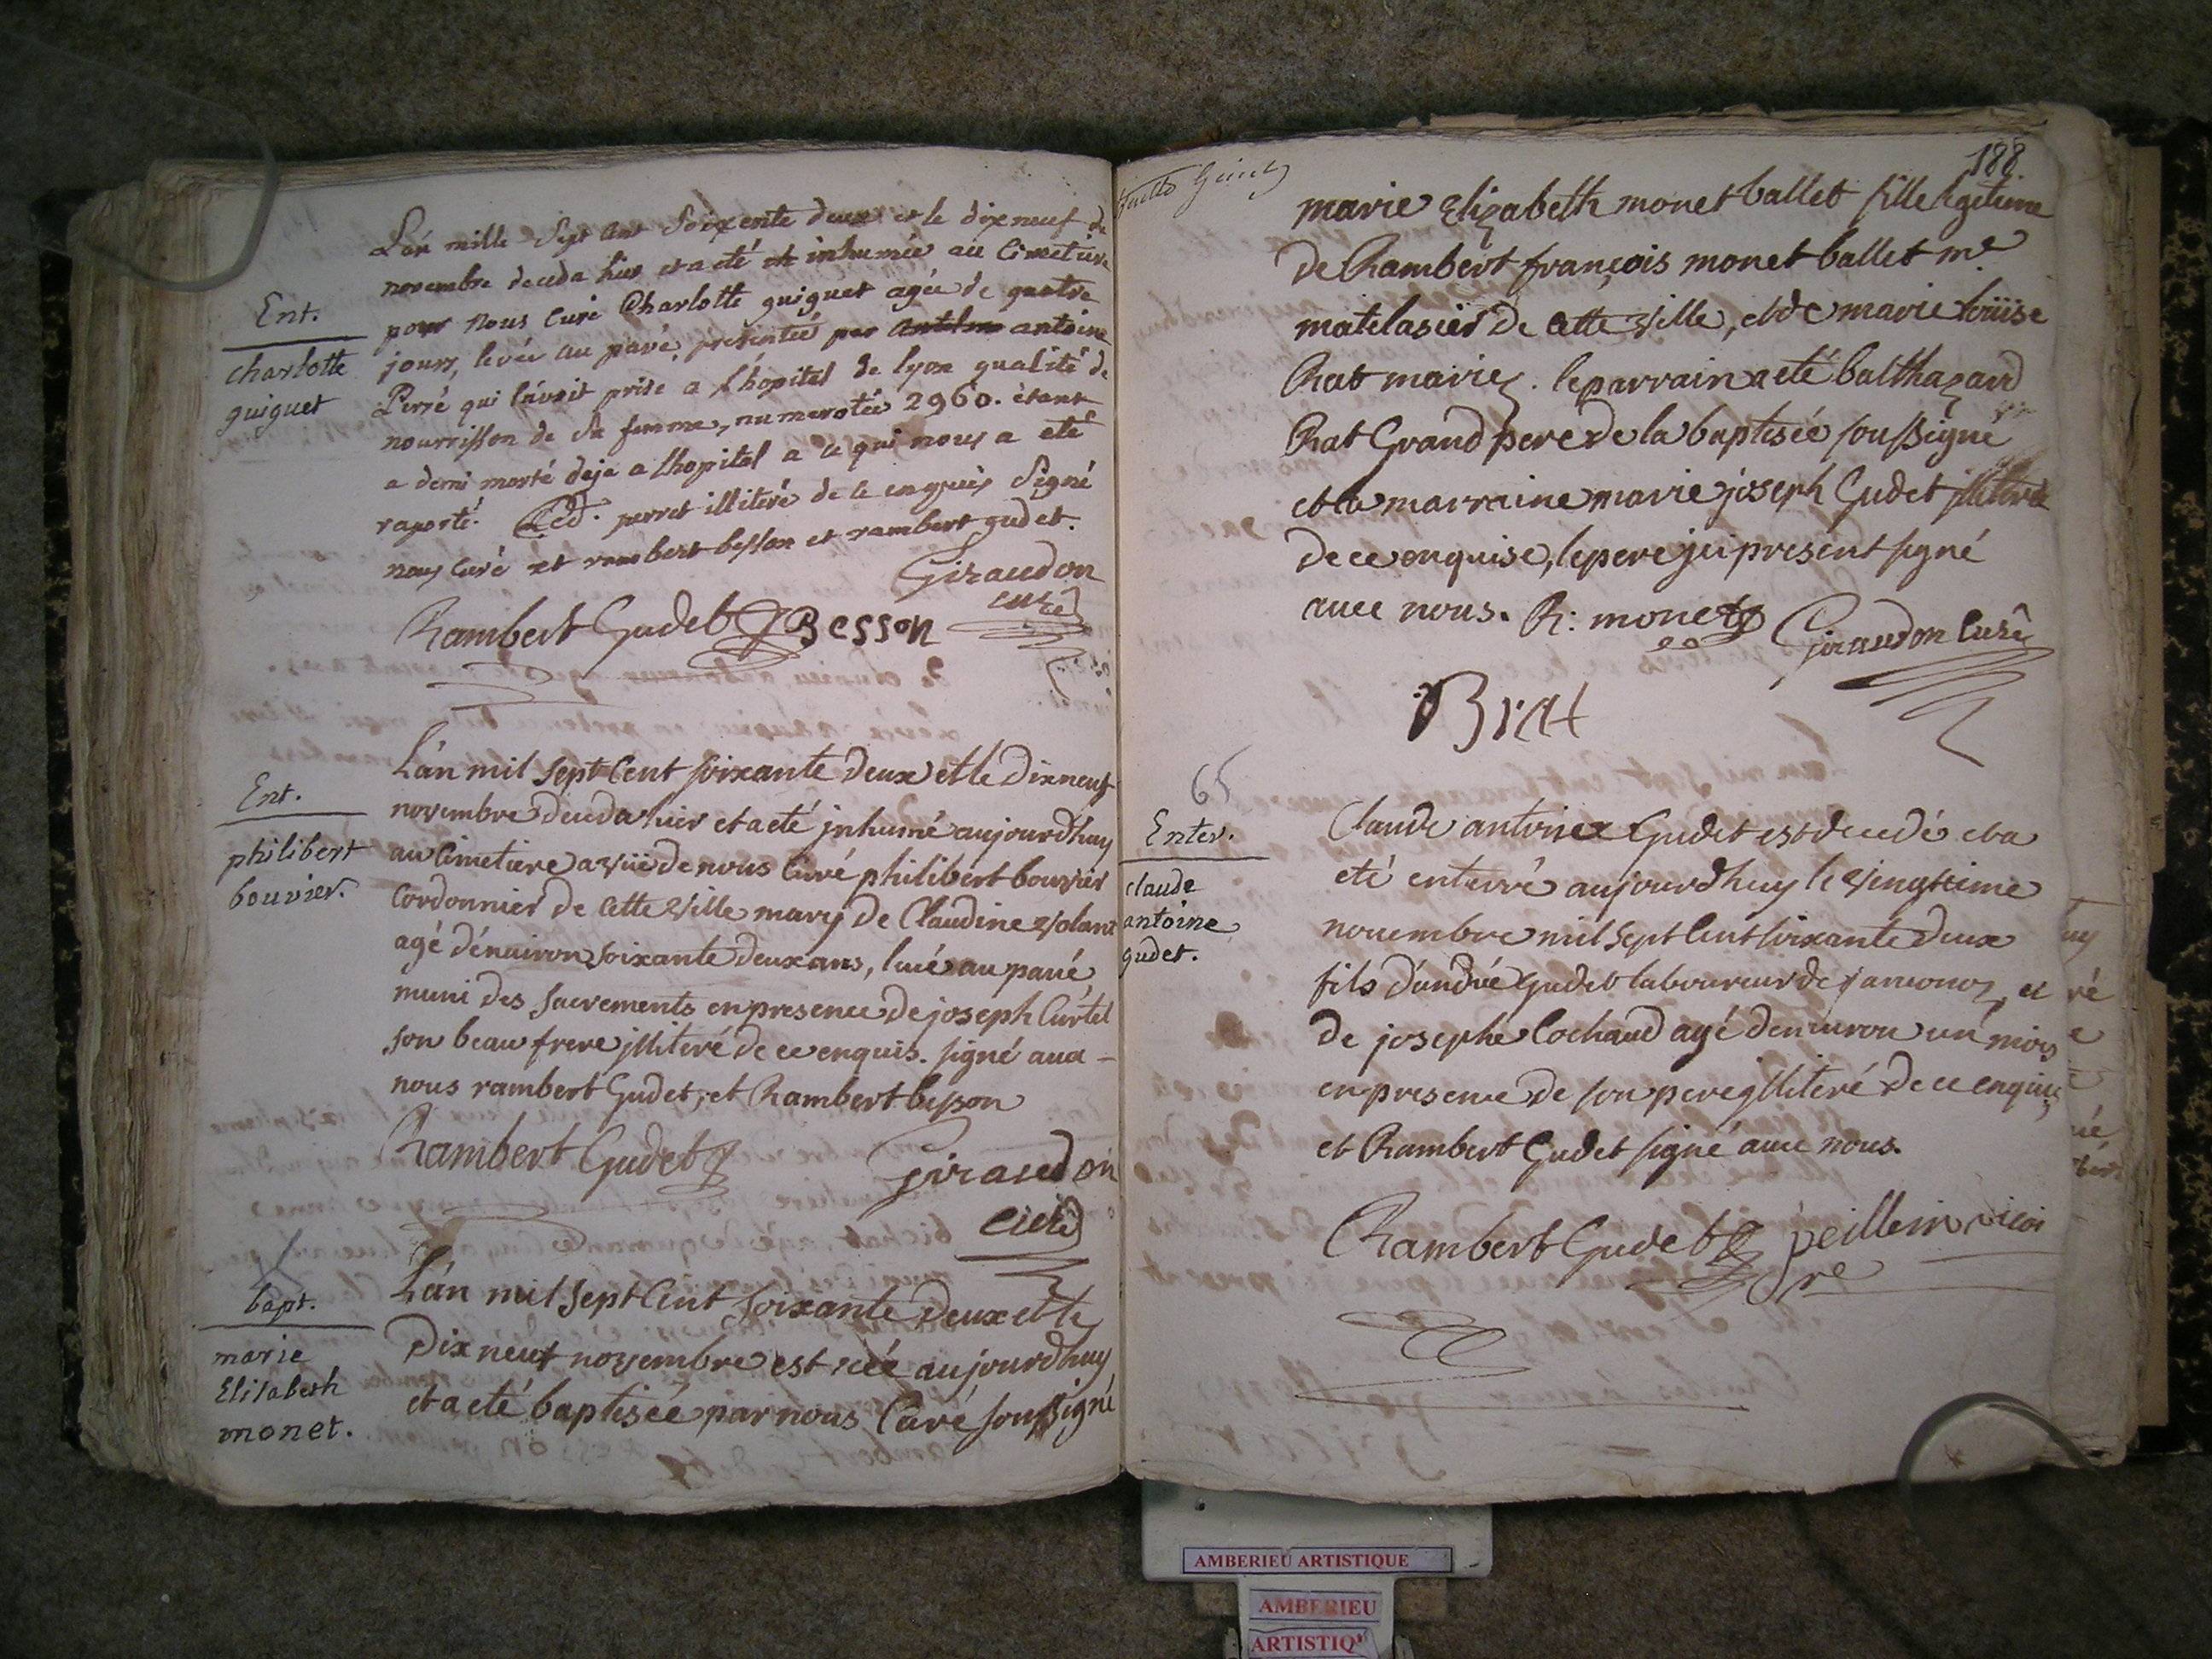 L'an mille Sept Cent Soixente deux et le dix neuf de
novembre deceda hier et a eté inhumée au Cimetiere
pour nous Curé Charlotte guiguet agée de quatre
jours, levée au pavé, presentée par Antelme antoine
Perré qui l'avoit prise a l'hopital de lyon qualité de
nourrisson de Sa femme, numerotée 2960. étant
a demi morte deja a lhopital a ce qui nous a eté
raporté. Led. perret illiteré de ce enquis Signé
nous Curé et rambert besson et rambert gudet.
Giraudon
curé
Rambert Gudet Besson
Ent.
charlotte
guiguet
L'an mil sept Cent soixante deux et le dix neuf
novembre deceda hier et a eté jnhumé aujourdhuy
au Cimetiere a vüe de nous Curé philibert bouvier
Cordonnier de cette ville mary de Claudine volant
agé dénuiron soixante deux ans, levé au pavé,
muni des sacrements en presence de joseph Curtel
son beau frere jlliteré de ce enquis. signé auec
nous rambert Gudet, et Rambert besson
Rambert Gudet
Giraudon
Curé
Ent.
philibert
bouvier.
L'an mil sept Cent soixante deux et le
dix neuf novembre est née aujourdhuy
et a eté baptisée par nous Curé soussigné
bapt.
marie
Elisabeth
monet.
188.
marie Elizabeth monet ballet fille legitime
de Rambert françois monet ballet me.
matelasier de cette ville, et de marie loüise
Rat mariés. le parrain a eté balthazard
Rat Grand pere de la baptisée soussigné
et la marraine marie joseph Gudet jlliterée
de ce enquise, le pere jci present signé
auec nous. R: monet Giraudon Curé
BRAt
65
Enter.
claude
antoine
gudet.
Claude antoine Gudet est decedé et a
eté enterré aujourdhuy le vingtieme
nouembre mil sept Cent soixante deux
fils d'andré Gudet laboureur de jauonos, et
de josephe Cochaud agé denuiron un mois
en presence de son pere jlliteré de ce enquis,
et Rambert Gudet signé auec nous.
Rambert Gudet peillein vicaire
AMBERIEU ARTISTIQUE
AMBERIEU
ARTISTIQ